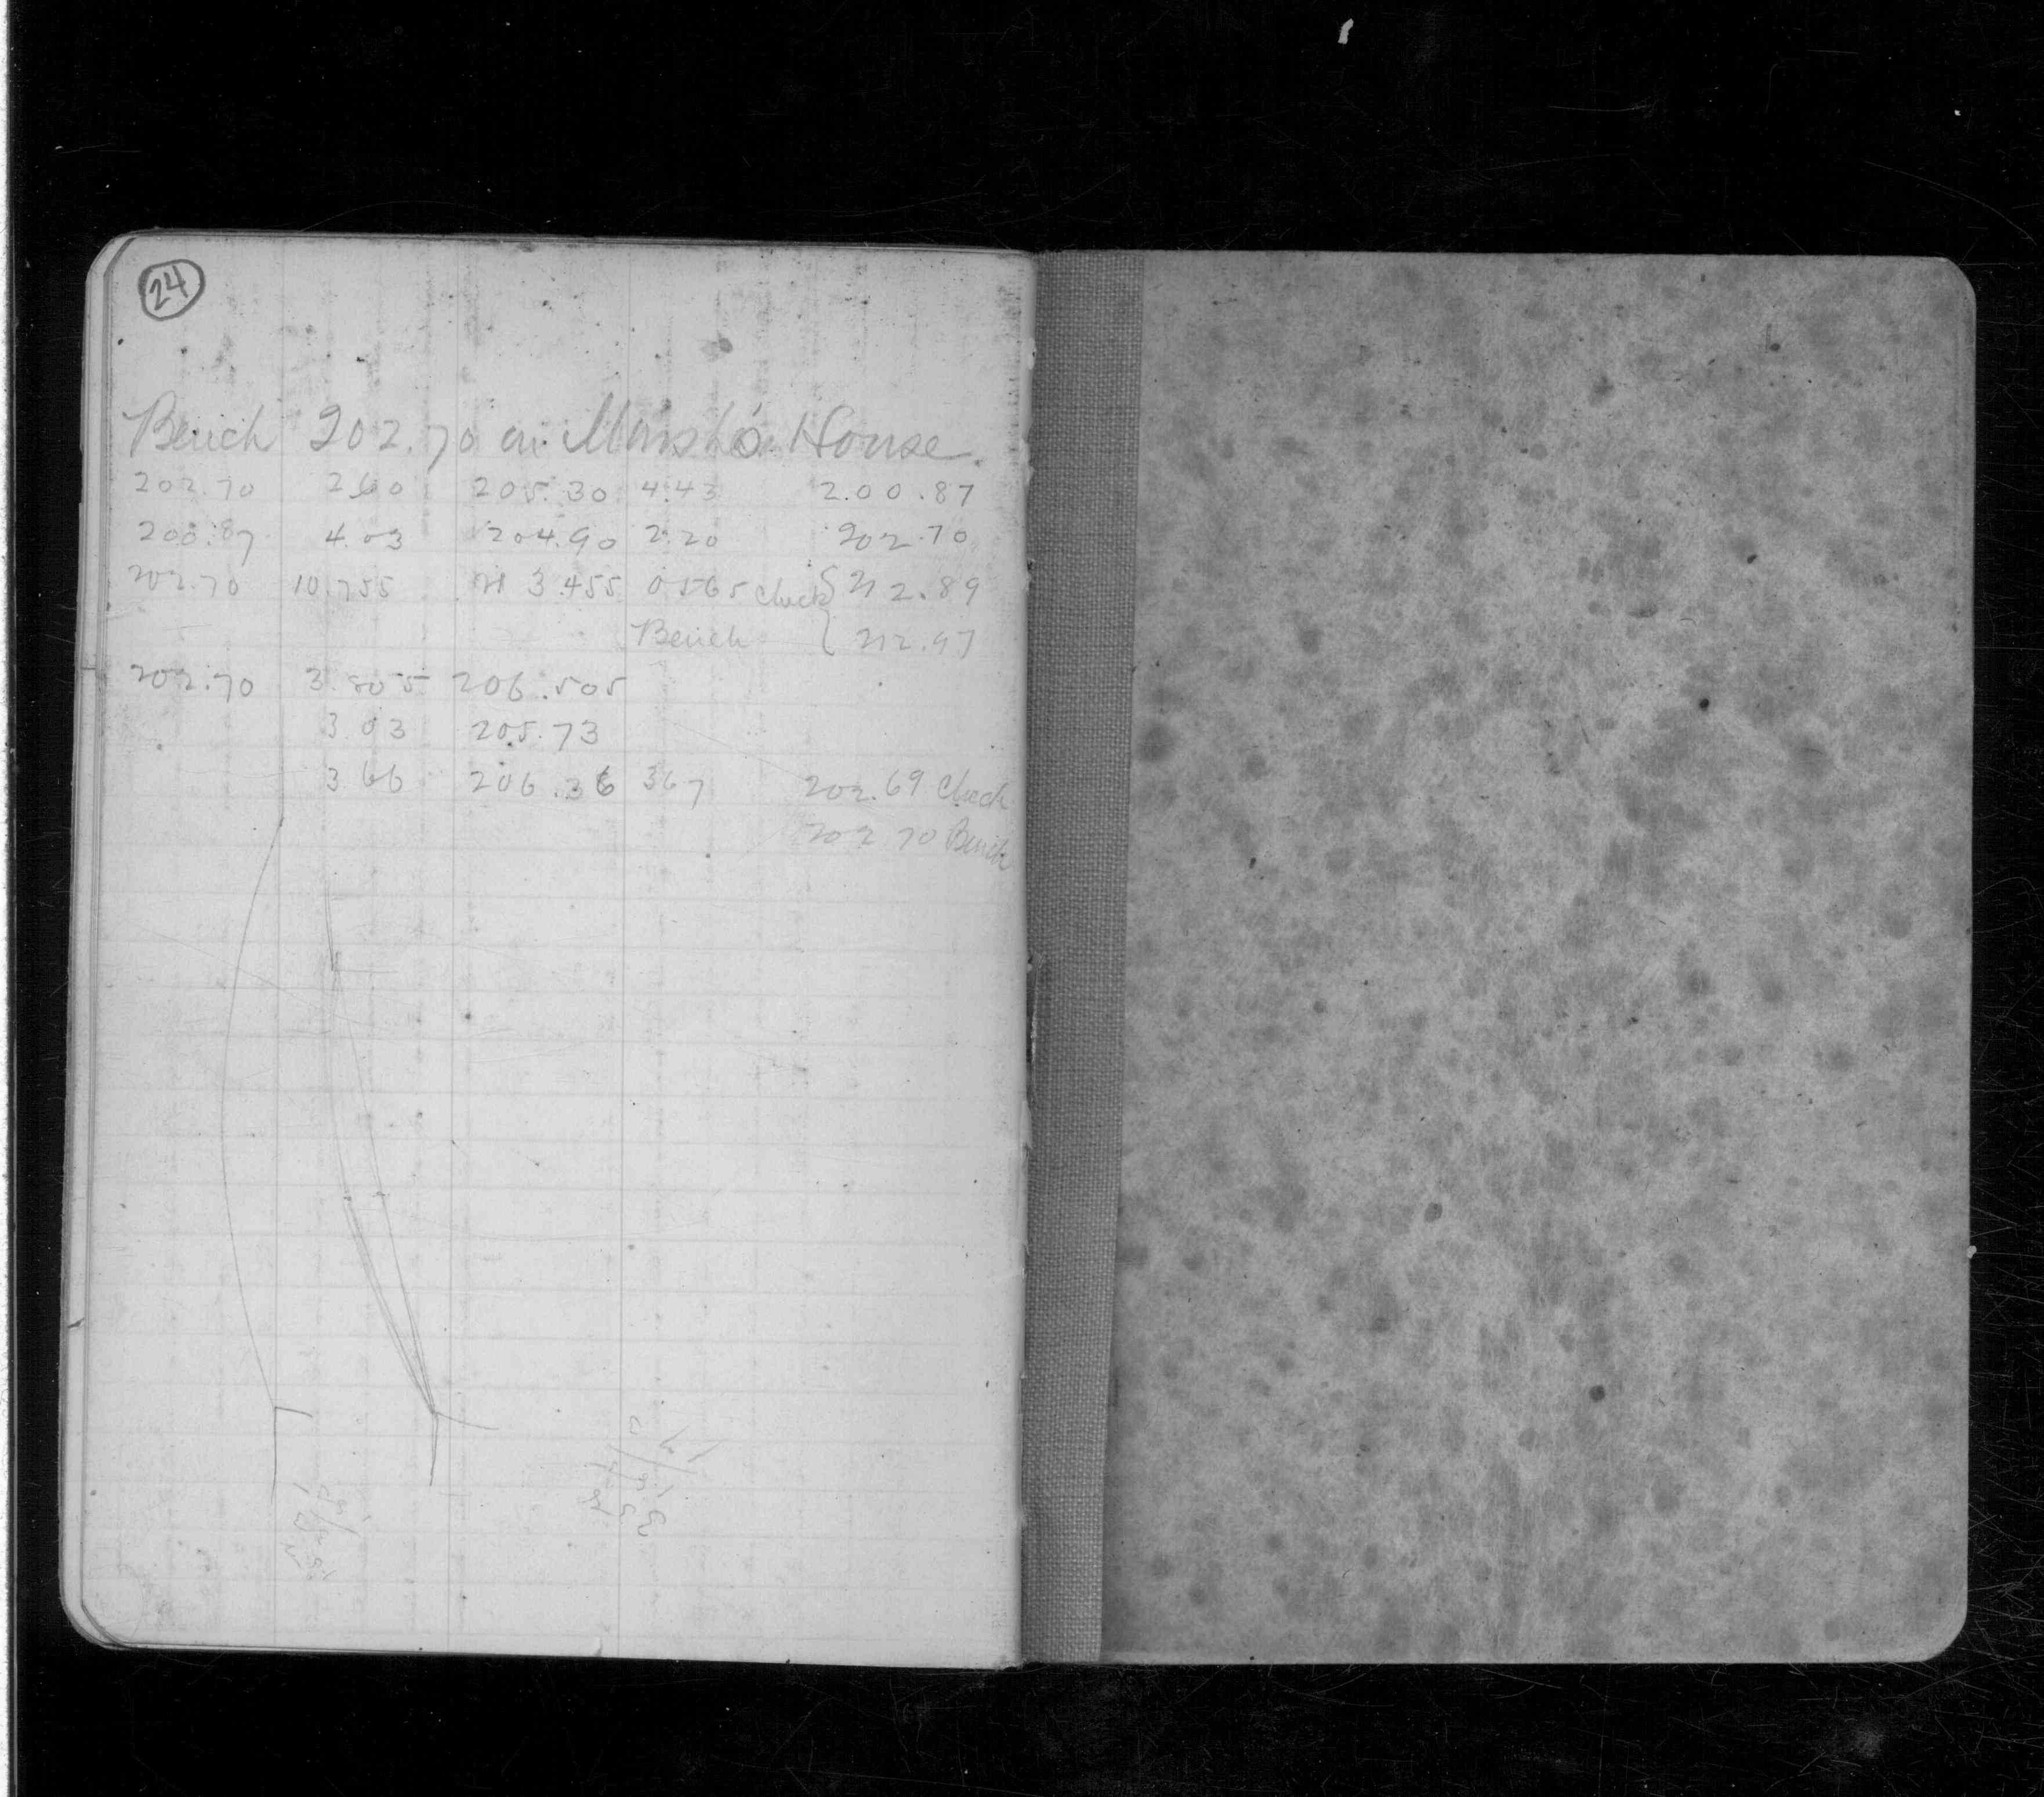 24
Bench 202.70 on Marsh's House.
202.70 2.60 205.30 4.43 2.00.87
200.87 4.03 204.90 2.20 202.70
202.70 10.755 21 3.455 0565 check { 212.89
Bench { 212.97
202.70 3.805 206.505
3.03 205.73
3 66 206.36 367 202.69 check
202 70 Bench